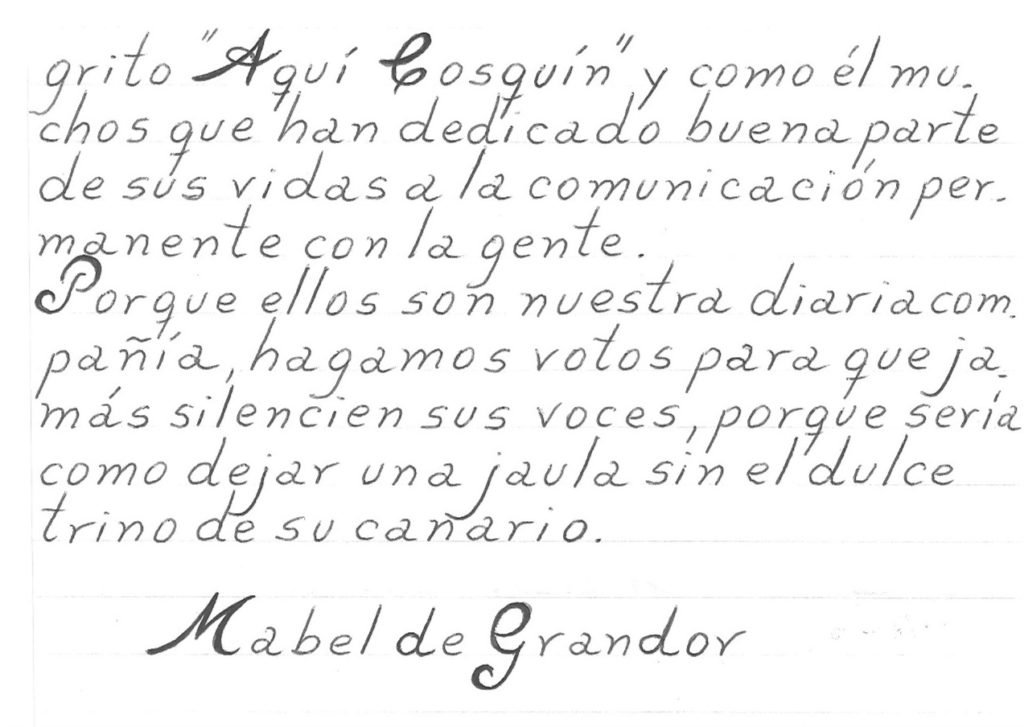 grito "Aquí Cosquín" y como él mu-
chos que han dedicado buena parte
de sus vidas a la comunicación per-
manente con la gente.
Porque ellos son nuestra diaria com-
pañía, hagamos votos para que ja-
más silencien sus voces, porque sería
como dejar una jaula sin el dulce
trino de su canario.
Mabel de Grandor